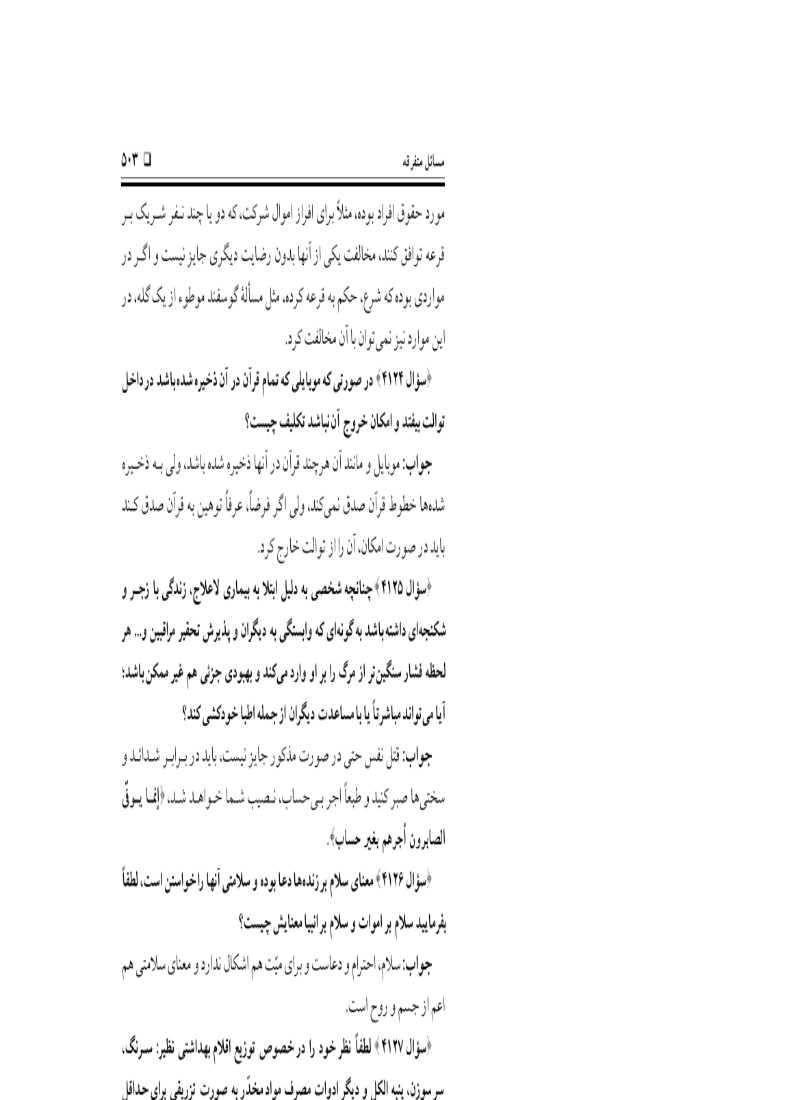 مسائل متفرقه ❏ ۵۰۳
مورد حقوق افراد بوده، مثلاً برای افراز اموال شرکت، که دو یا چند نـفر شـریک بـر
قرعه توافق کنند، مخالفت یکی از آنها بدون رضایت دیگری جایز نیست و اگـر در
مواردی بوده که شرع، حکم به قرعه کرده، مثل مسألهٔ گوسفند موطوء از یک گله، در
این موارد نیز نمی‌توان با آن مخالفت کرد.
﴿سؤال ۴۱۲۴﴾ در صورتی که موبایلی که تمام قرآن در آن ذخیره شده باشد در داخل
توالت بیفتد و امکان خروج آن نباشد تکلیف چیست؟
جواب: موبایل و مانند آن هرچند قرآن در آنها ذخیره شده باشد، ولی بـه ذخـیره
شده‌ها خطوط قرآن صدق نمی‌کند، ولی اگر فرضاً، عرفاً توهین به قرآن صدق کـند
باید در صورت امکان، آن را از توالت خارج کرد.
﴿سؤال ۴۱۲۵﴾ چنانچه شخصی به دلیل ابتلا به بیماری لاعلاج، زندگی با زجـر و
شکنجه‌ای داشته باشد به گونه‌ای که وابستگی به دیگران و پذیرش تحقیر مراقبین و... هر
لحظه فشار سنگین‌تر از مرگ را بر او وارد می‌کند و بهبودی جزئی هم غیر ممکن باشد؛
آیا می‌تواند مباشرتاً یا با مساعدت دیگران از جمله اطبا خودکشی کند؟
جواب: قتل نفس حتی در صورت مذکور جایز نیست، باید در بـرابـر شـدائـد و
سختی‌ها صبر کنید و طبعاً اجر بـی‌حساب، نـصیب شـما خـواهـد شـد، ﴿إنمـا یـوفّی
الصابرون أجرهم بغیر حساب﴾.
﴿سؤال ۴۱۲۶﴾ معنای سلام بر زنده‌ها دعا بوده و سلامتی آنها را خواستن است، لطفاً
بفرمایید سلام بر اموات و سلام بر انبیا معنایش چیست؟
جواب: سلام، احترام و دعاست و برای میّت هم اشکال ندارد و معنای سلامتی هم
اعم از جسم و روح است.
﴿سؤال ۴۱۲۷﴾ لطفاً نظر خود را در خصوص توزیع اقلام بهداشتی نظیر: سـرنگ،
سر سوزن، پنبه الکل و دیگر ادوات مصرف مواد مخدّر به صورت تزریقی برای حداقل